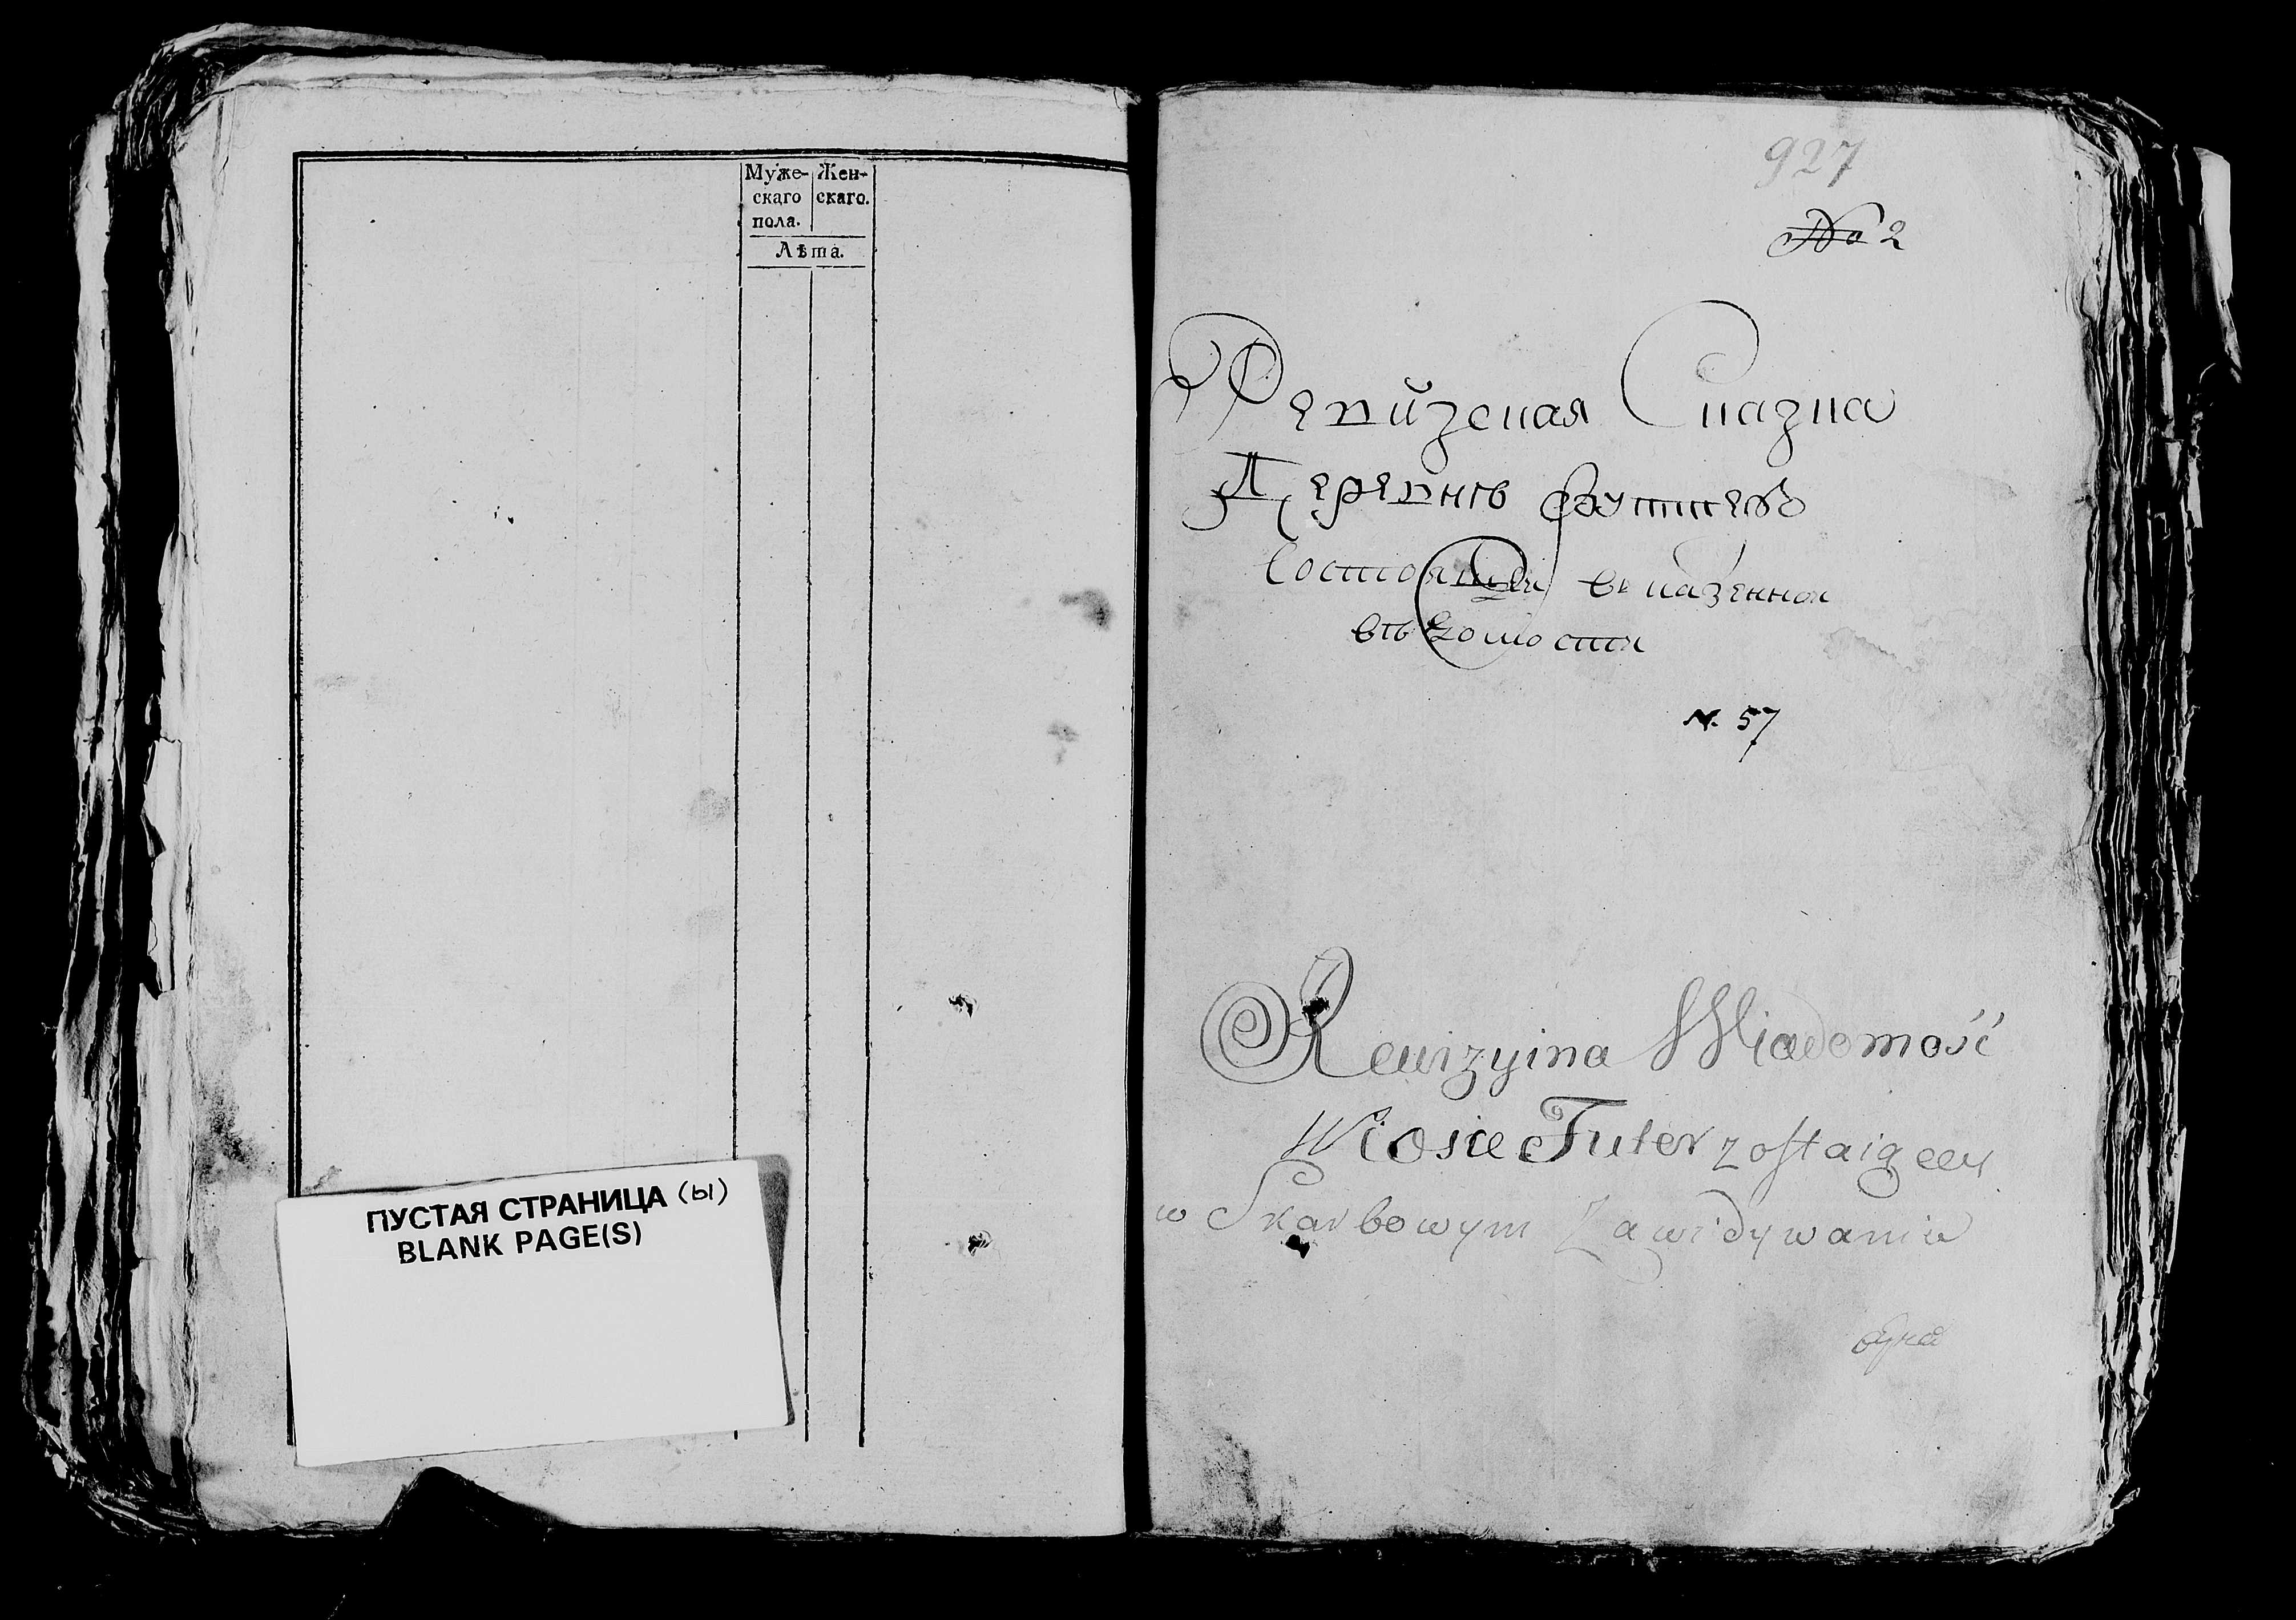 Муже- Жен-
скаго скаго.
пола.
Лѣта.
ПУСТАЯ СТРАНИЦА (ы)
BLANK PAGE(S)
927
№ 2
Ревизская Сказка
Деревнѣ Футтеръ
Состоящей въ казенной
вѣдомости
N. 57
Rewizyina Wiadomość
Wiosce Futer zostaiącey
w Skarbowym Zawidywaniu